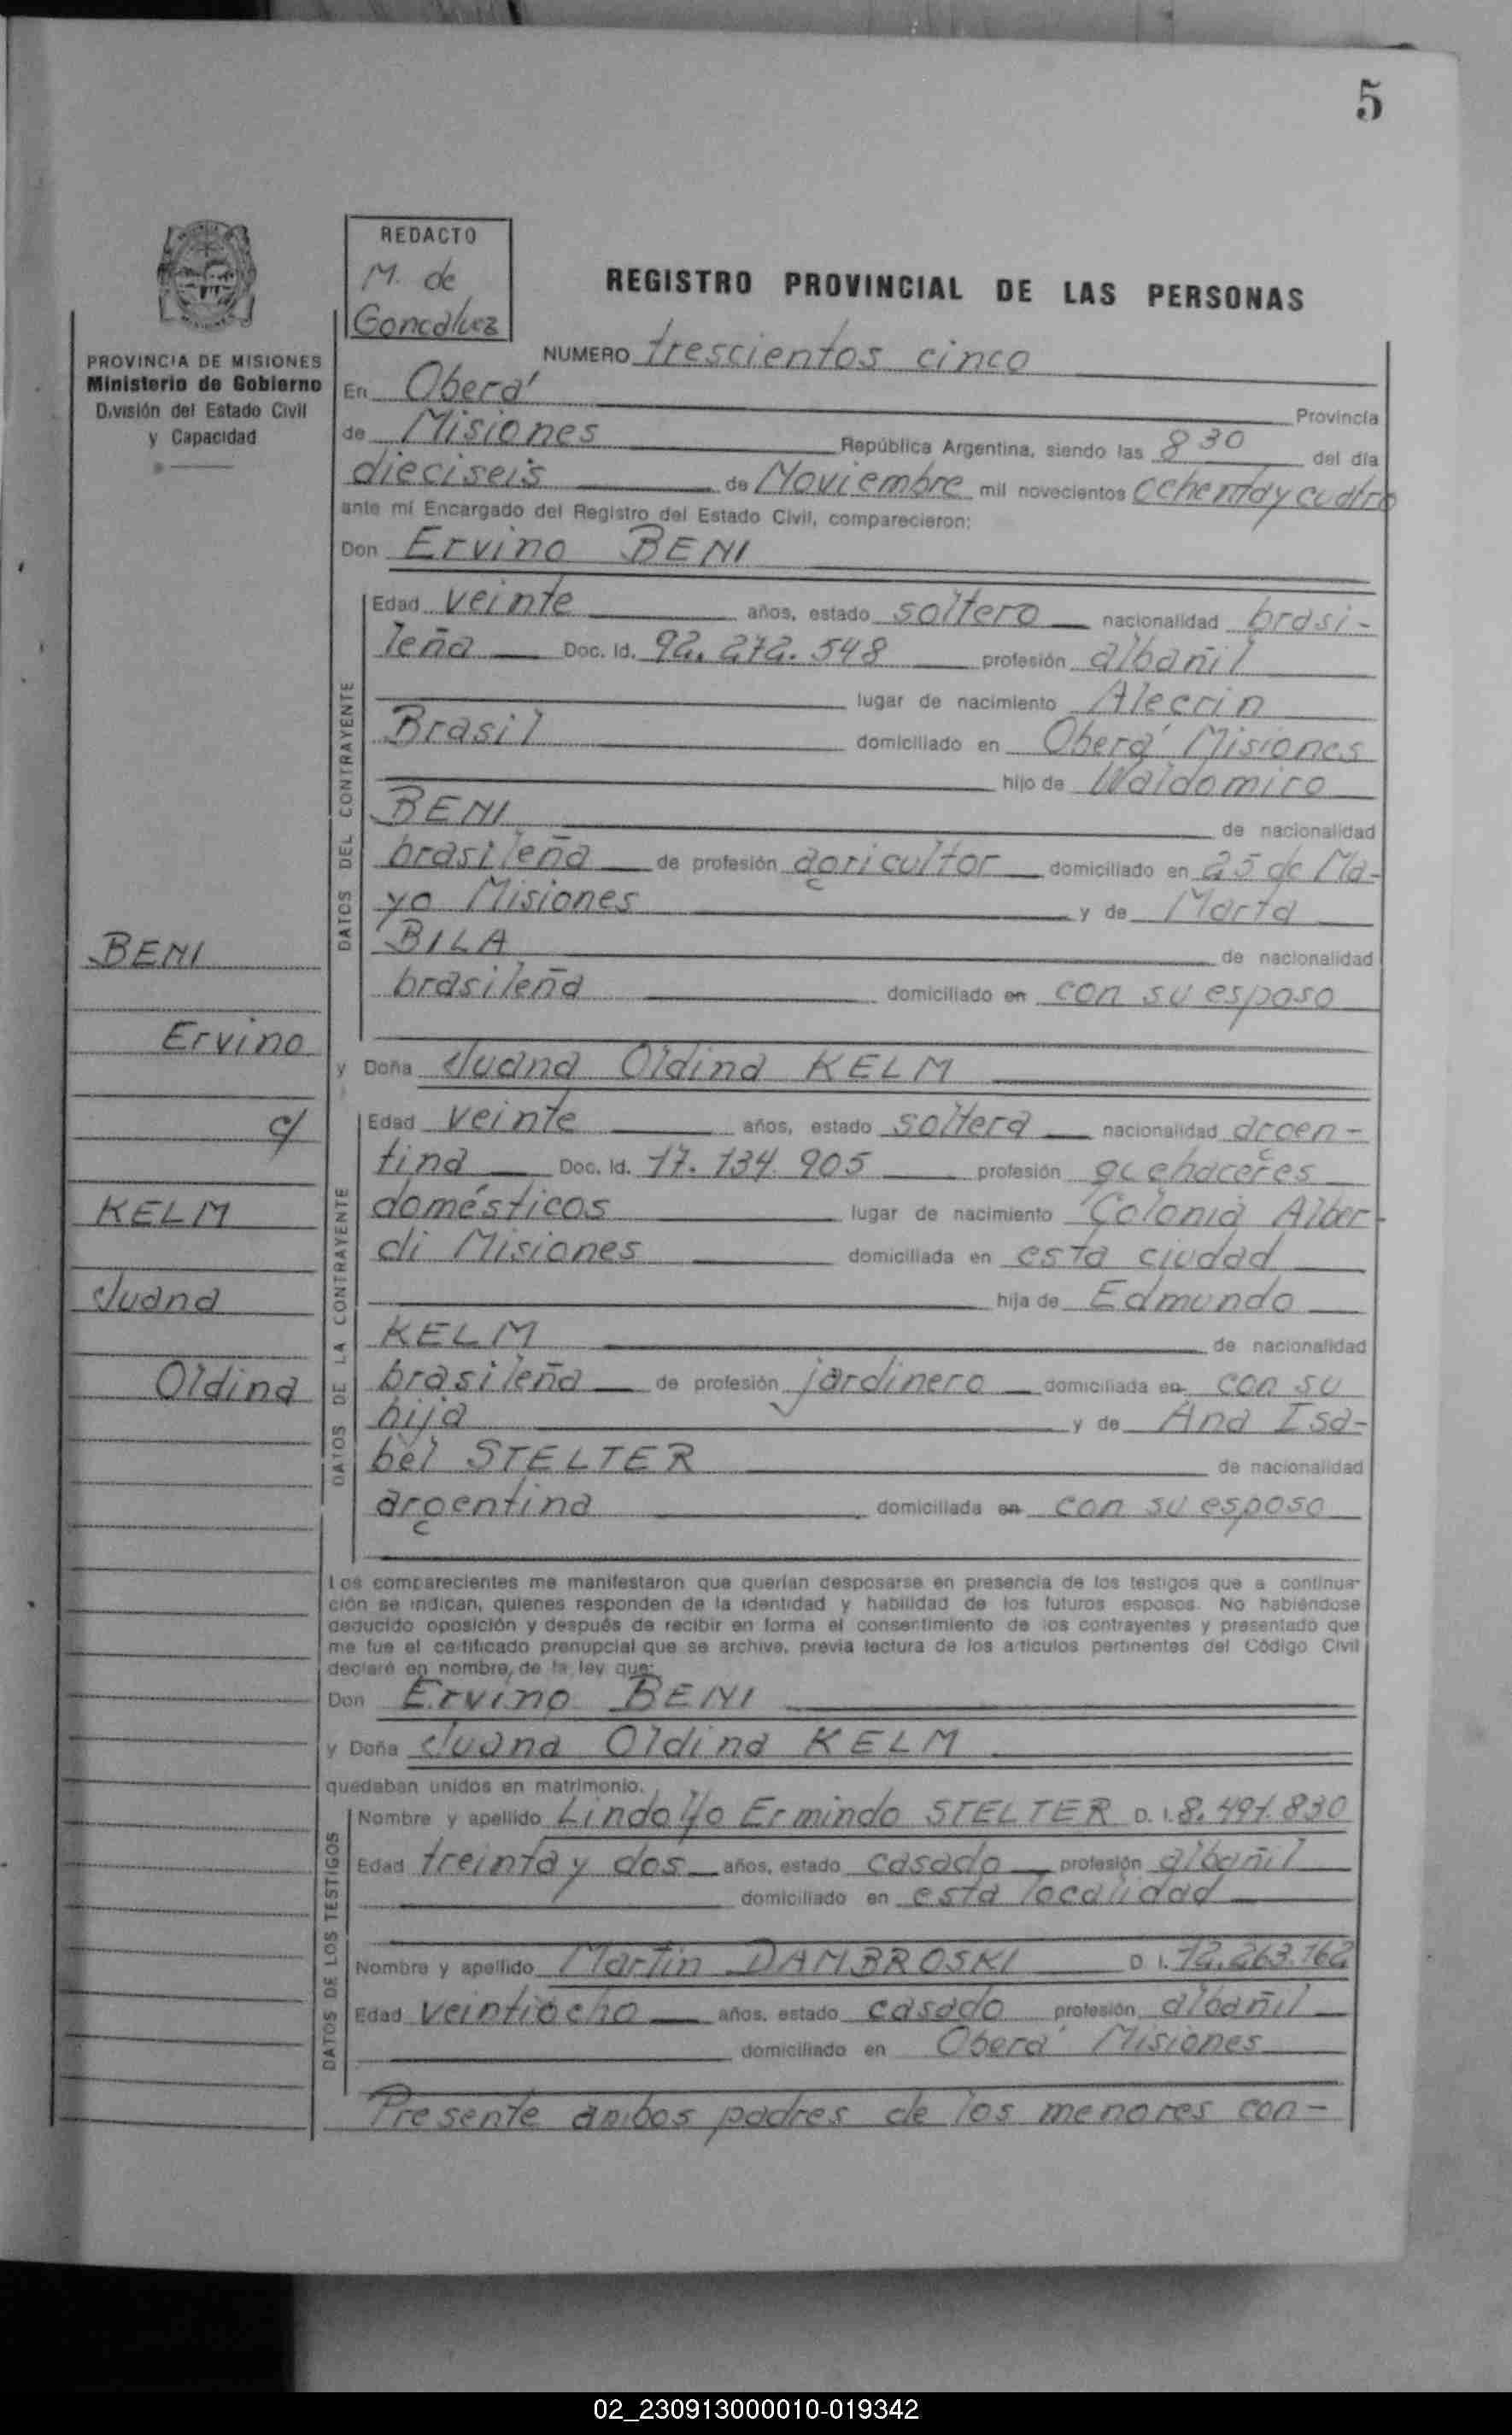 5
REDACTO
M. de
Goncalvez
REGISTRO PROVINCIAL DE LAS PERSONAS
PROVINCIA DE MISIONES
Ministerio de Gobierno
División del Estado Civil
y Capacidad
NUMERO trescientos cinco
En Oberá Provincia
de Misiones República Argentina, siendo las 8 30 del día
dieciseis de Noviembre mil novecientos ochenta y cuatro
ante mí Encargado del Registro del Estado Civil, comparecieron:
Don Ervino BENI
DATOS DEL CONTRAYENTE
Edad veinte años, estado soltero nacionalidad brasi-
leña Doc. Id. 92.272.548 profesión albañil
lugar de nacimiento Alecrin
Brasil domiciliado en Oberá Misiones
hijo de Waldomiro
BENI de nacionalidad
brasileña de profesión agricultor domiciliado en 25 de Ma-
yo Misiones y de Marta
BILA de nacionalidad
brasileña domiciliado en con su esposo
y Doña Juana Oldina KELM
BENI
Ervino
c/
KELM
Juana
Oldina
DATOS DE LA CONTRAYENTE
Edad veinte años, estado soltera nacionalidad argen-
tina Doc. Id. 17.134.905 profesión quehaceres
domésticos lugar de nacimiento Colonia Alber-
di Misiones domiciliada en esta ciudad
hija de Edmundo
KELM de nacionalidad
brasileña de profesión jardinero domiciliada en con su
hija y de Ana Isa-
bel STELTER de nacionalidad
argentina domiciliada en con su esposo
Los comparecientes me manifestaron que querían desposarse en presencia de los testigos que a continua-
ción se indican, quienes responden de la identidad y habilidad de los futuros esposos. No habiéndose
deducido oposición y después de recibir en forma el consentimiento de los contrayentes y presentado que
me fue el certificado prenupcial que se archiva, previa lectura de los artículos pertinentes del Código Civil
declaré en nombre de la ley que:
Don Ervino BENI
y Doña Juana Oldina KELM
quedaban unidos en matrimonio.
DATOS DE LOS TESTIGOS
Nombre y apellido Lindolfo Ermindo STELTER D. I. 8.491.830
Edad treinta y dos años, estado casado profesión albañil
domiciliado en esta localidad
Nombre y apellido Martin DAMBROSKI D. I. 12.263.162
Edad veintiocho años, estado casado profesión albañil
domiciliado en Oberá Misiones
Presente ambos padres de los menores con-
02_230913000010-019342